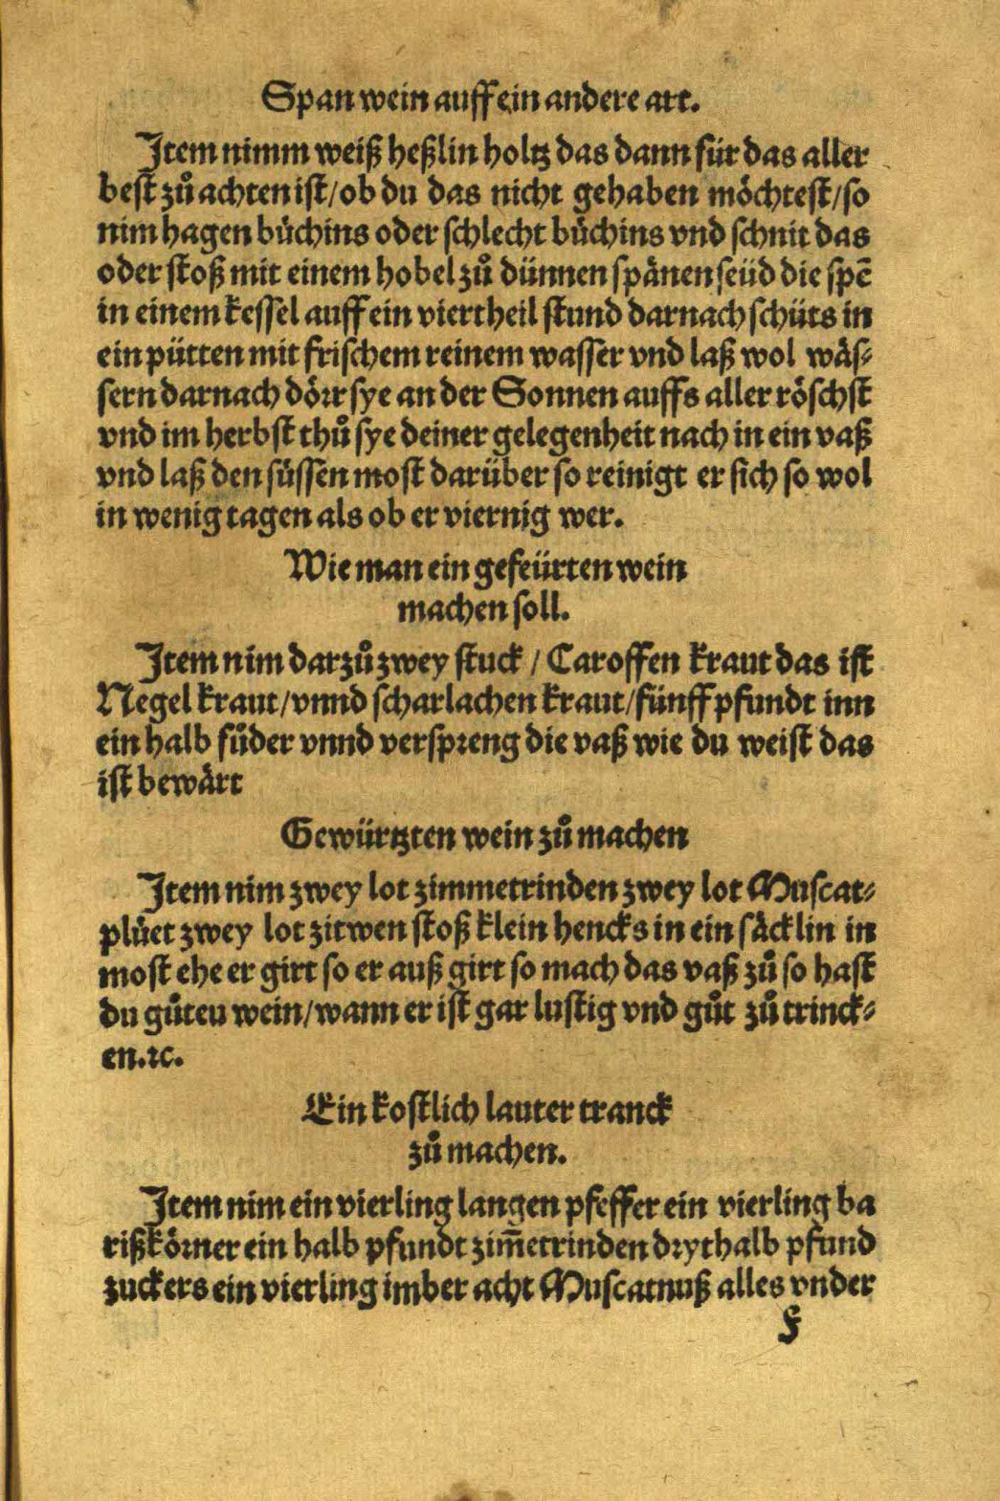 Span wein auff ein andere art.
Item nimm weiß heßlin holtz das dann für das aller
best zů achten ist/ob du das nicht gehaben möchtest/so
nim hagen bůchins oder schlecht bůchins vnd schnit das
oder stoß mit einem hobel zů dünnen spänen seüd die spē
in einem kessel auff ein viertheil stund darnach schüts in
ein pütten mit frischem reinem wasser vnd laß wol wäs⸗
sern darnach dörr sye an der Sonnen auffs aller röschst
vnd im herbst thů sye deiner gelegenheit nach in ein vaß
vnd laß den süssen most darüber so reinigt er sich so wol
in wenig tagen als ob er viernig wer.
Wie man ein gefeürten wein
machen soll.
Item nim darzů zwey stuck / Caroffen kraut das ist
Negel kraut/vnnd scharlachen kraut/fünff pfundt inn
ein halb fůder vnnd verspreng die vaß wie du weist das
ist bewärt
Gewürtzten wein zů machen
Item nim zwey lot zimmetrinden zwey lot Muscat⸗
plůet zwey lot zitwen stoß klein hencks in ein säcklin in
most ehe er girt so er auß girt so mach das vaß zů so hast
du gůteu wein/wann er ist gar lustig vnd gůt zů trinck⸗
en.ꝛc.
Ein kostlich lauter tranck
zů machen.
Item nim ein vierling langen pfeffer ein vierling ba
rißkörner ein halb pfundt zim̄etrinden drythalb pfund
zuckers ein vierling imber acht Muscatnuß alles vnder
F